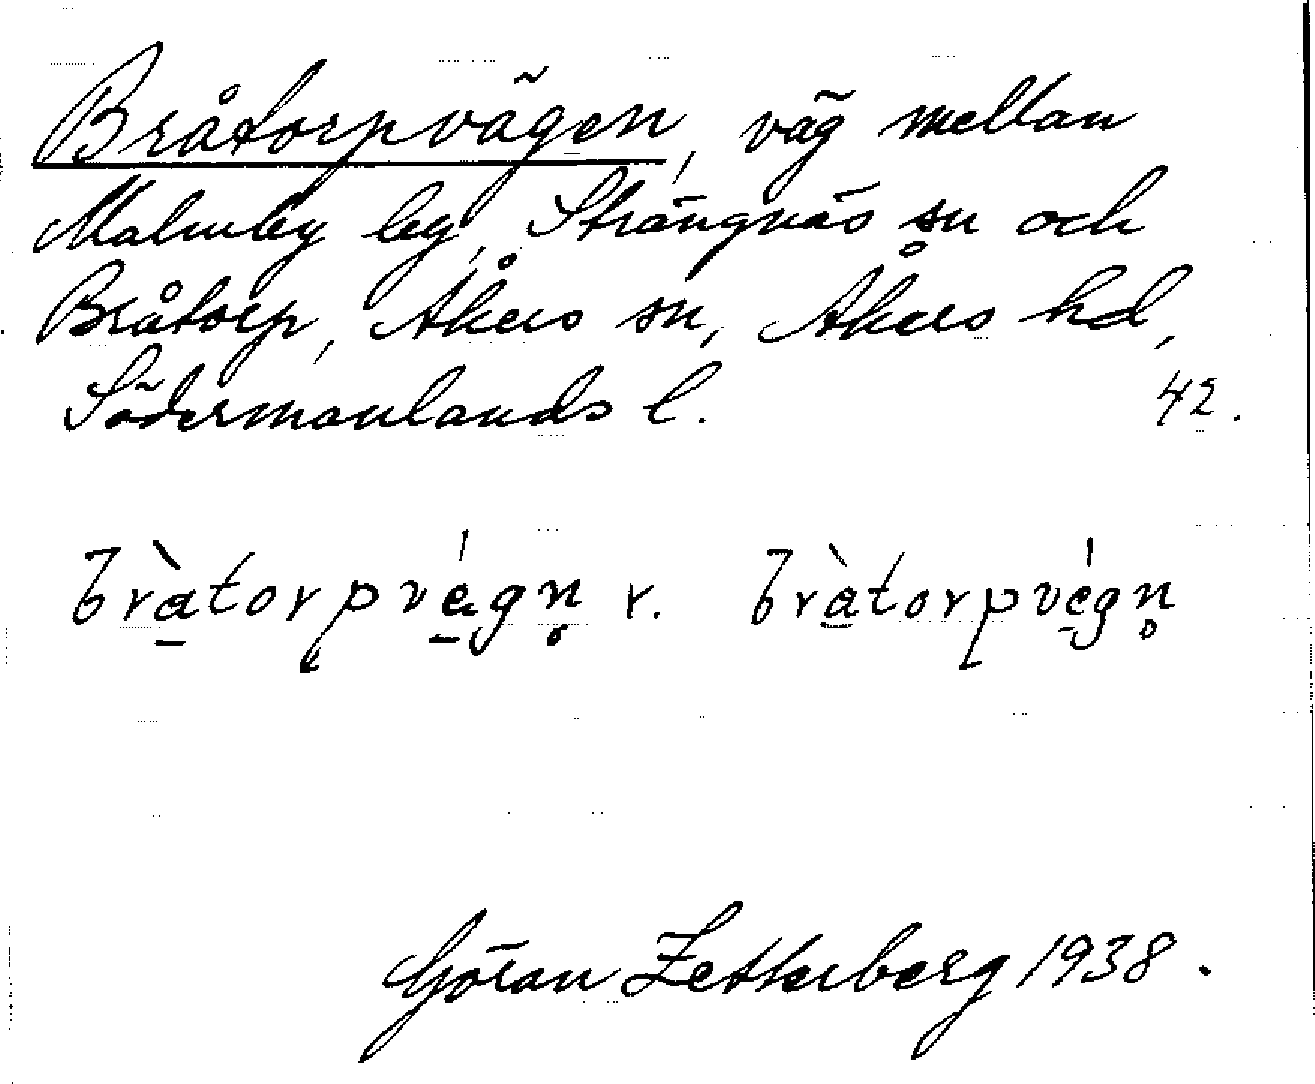 Bråtorpvägen, väg mellan
Malmby by, Strängnäs sn och
Bråtorp, Åkers sn, Åkers hd,
Södermanlands l. 42.
bràtorpvégn̥ r. bràtorpvégn̥
Göran Zetterberg 1938.